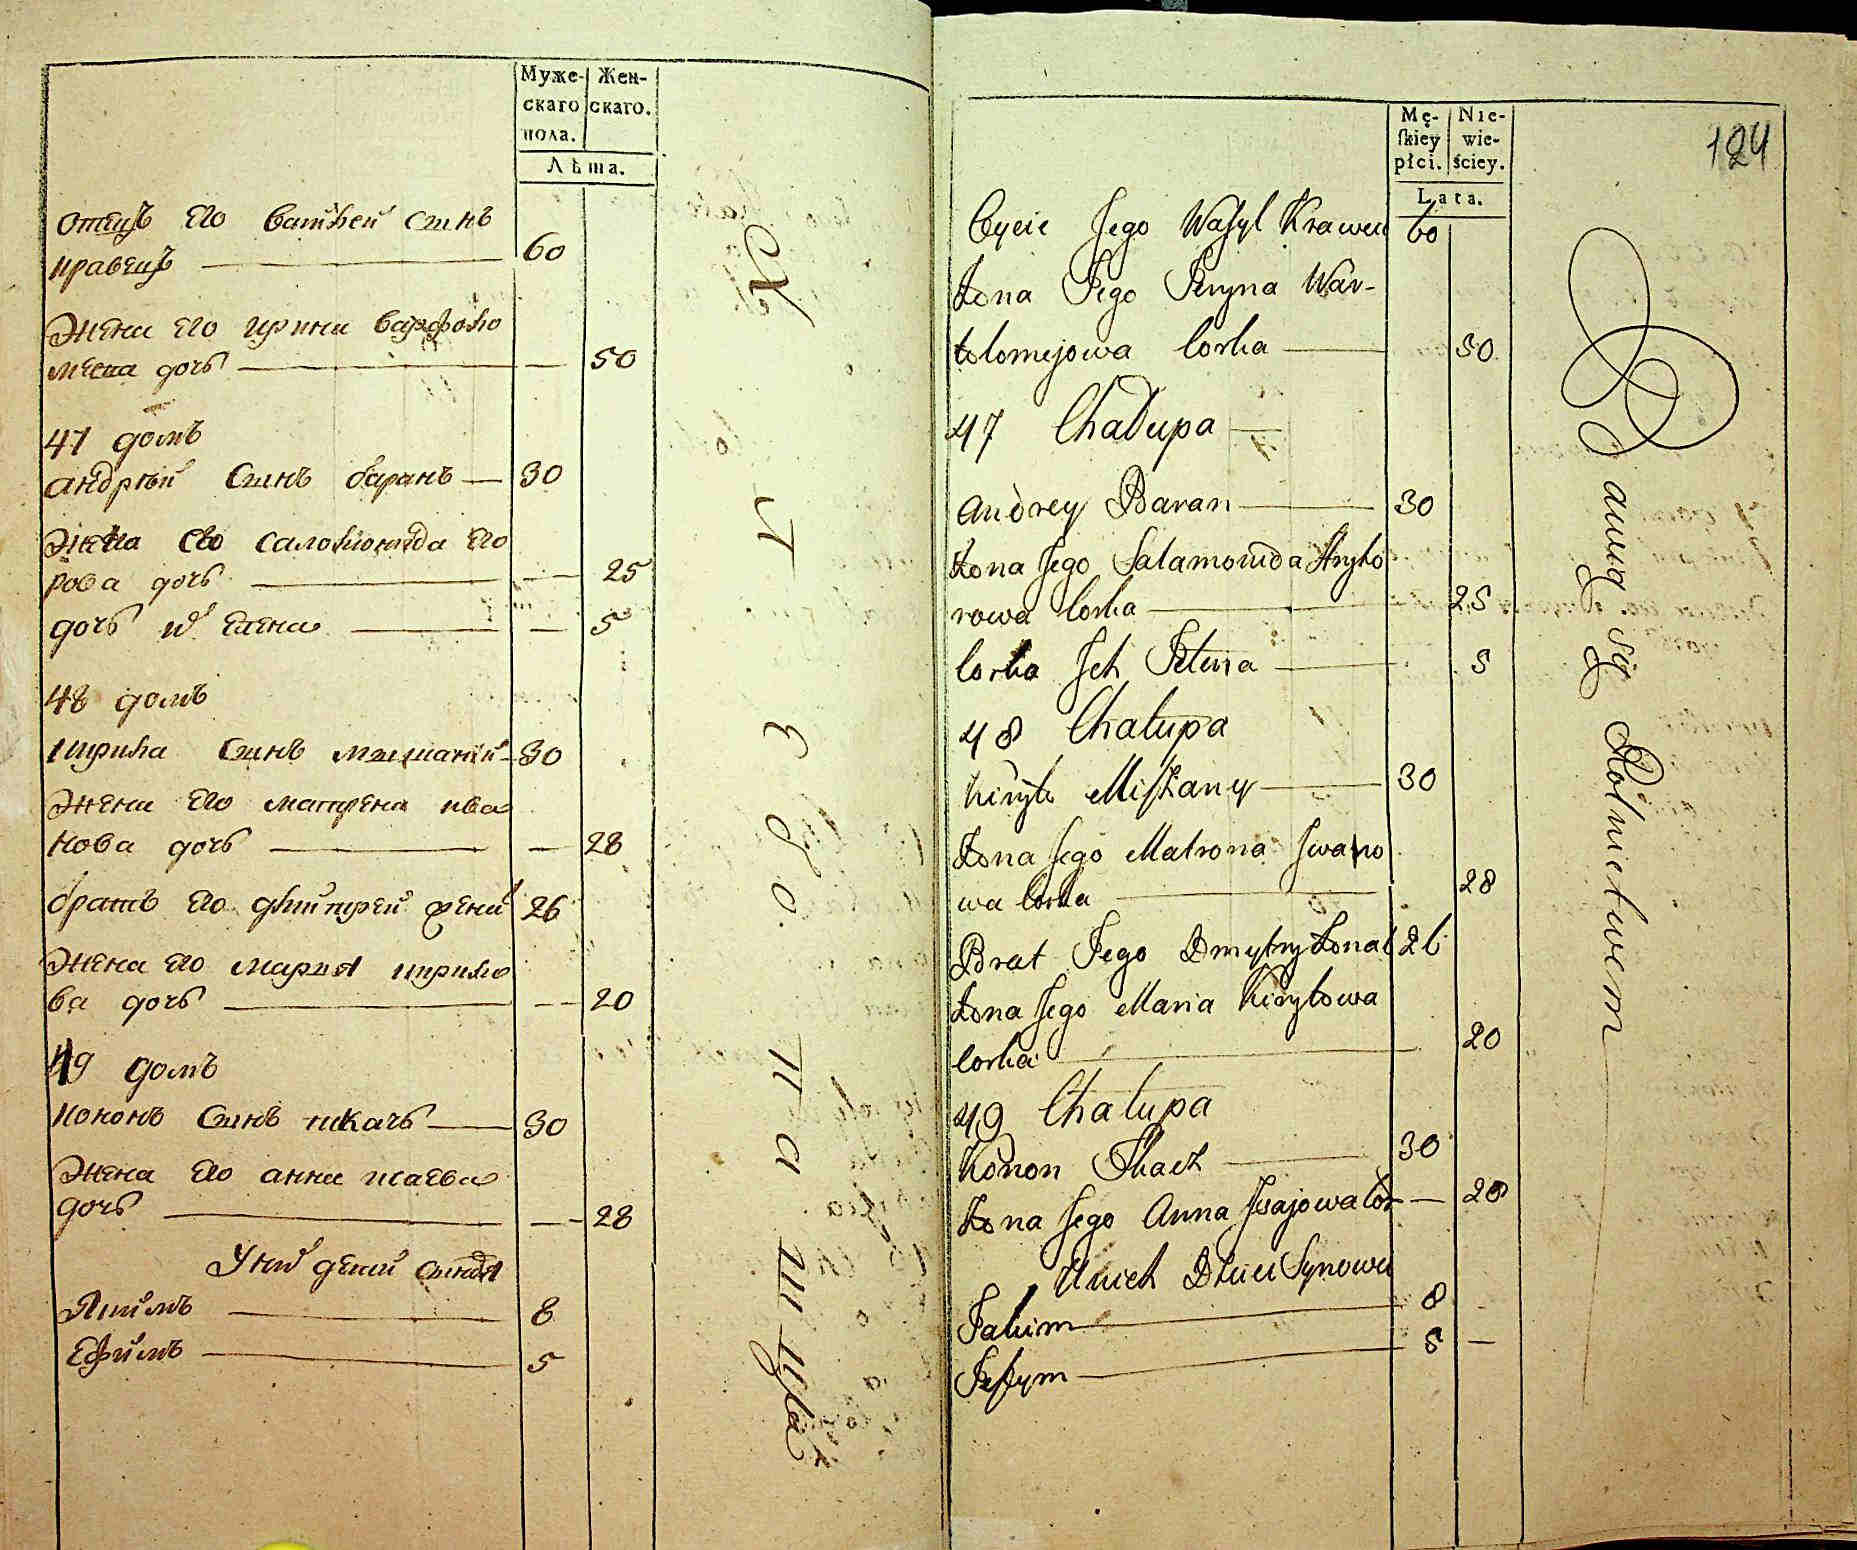 Муже-
скаго
пола.
Жен-
скаго.
Лѣта.
отецъ его василей синъ
кравецъ — 60
жена его ирина варфоло
меева дочь — 50
47 домъ
андрѣй синъ баранъ — 30
жена его саломонида его
рова дочь — 25
дочь их елена — 5
48 домъ
кирила синъ мишаний — 30
жена его матрена ива
нова дочь — 28
братъ его дмитрей жена 26
жена его мария кирило
ва дочь — 20
49 домъ
кононъ синъ ткачъ — 30
жена его анна исаева
дочь — 28
У них дети
Якимъ — 8
Ефимъ — 5
124
Mę-
skiey
płci.
Nie-
wie-
ściey.
Lata.
Oycie Jego Wasyl Krawec 60
Żona Jego Jeryna War-
tolomejowa Corka — 50
47 Chałupa
Andrey Baran — 30
Żona Jego Salamonida Hryho
rowa Corka — 25
Corka Jch Jelena — 5
48 Chałupa
Kiryło Miszany — 30
Żona Jego Matrona Jwano
wa Corka — 28
Brat Jego Dmytry Żonat 26
Żona Jego Maria Kiryłowa
Corka — 20
49 Chałupa
Konon Tkacz — 30
Żona Jego Anna Jsajowa Cor — 28
U nich Dzieci Synowie
Jakim — 8
Jefym — 5
bawią się Rolnictwem